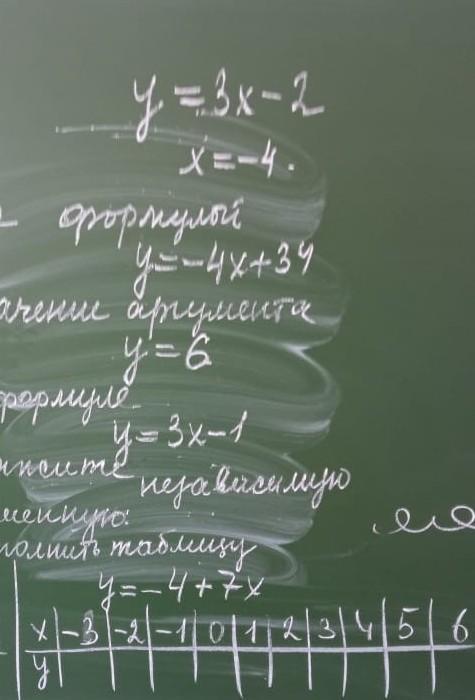 y = 3x - 2
x = -4.
формулой
y = -4x + 34
ачение аргумента
y = 6
формуле
y = 3x - 1
независимую
менную:
полнить таблицу
y = -4 + 7x
x | -3 | -2 | -1 | 0 | 1 | 2 | 3 | 4 | 5 | 6
y